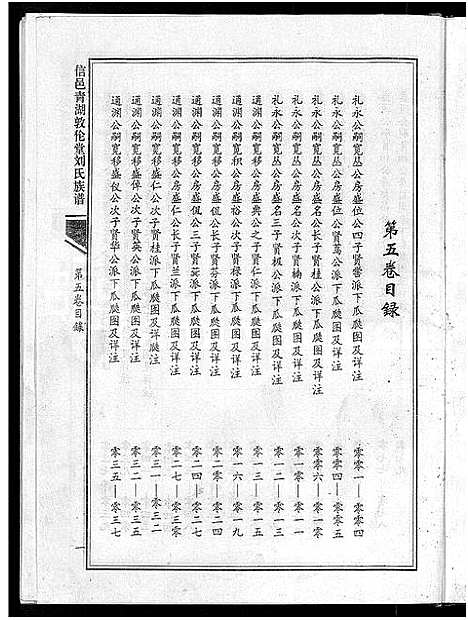 第五卷目録
礼永公嗣宽丛公房盛位公四子贤凿公派下瓜瓞图及详注 零零一—零零四
礼永公嗣宽丛公房盛位公贤篙公派下瓜瓞图及详注 零零四—零零五
礼永公嗣宽丛公房盛名公长子贤桂公派下瓜瓞图及详注 零零六—零一零
礼永公嗣宽丛公房盛名公次子贤楠派下瓜瓞图及详注 零一一—零一零
礼永公嗣宽丛公房盛名三子贤极公派下瓜瓞图及详注 零一二—零一三
通渊公嗣宽移公房盛典公之子贤仁派下瓜瓞图及详注 零一三—零一五
通渊公嗣宽积公房盛裕公次子贤禄派下瓜瓞图及详注 零一六—零一九
通渊公嗣宽移公房盛侃公长子贤芬派下瓜瓞图及详注 零二零—零二四
通渊公嗣宽移公房盛侃公三子贤派下瓜瓞图及详注 零二四—零二七
通渊公嗣宽移公房盛仁公长子贤兰派下瓜瓞图及详注 零二七—零三零
通渊公嗣宽移盛仁公次子贤桂派下瓜瓞图及详瓞注 零三一—零三二
通渊公嗣宽移盛倬公次子贤英公派下瓜瓞图及详注 零三二—零三五
通渊公嗣宽移盛仪公次子贤华公派下瓜瓞图及详注 零三五—零三七
信邑青湖敦伦堂刘氏族谱
第五卷目録
一